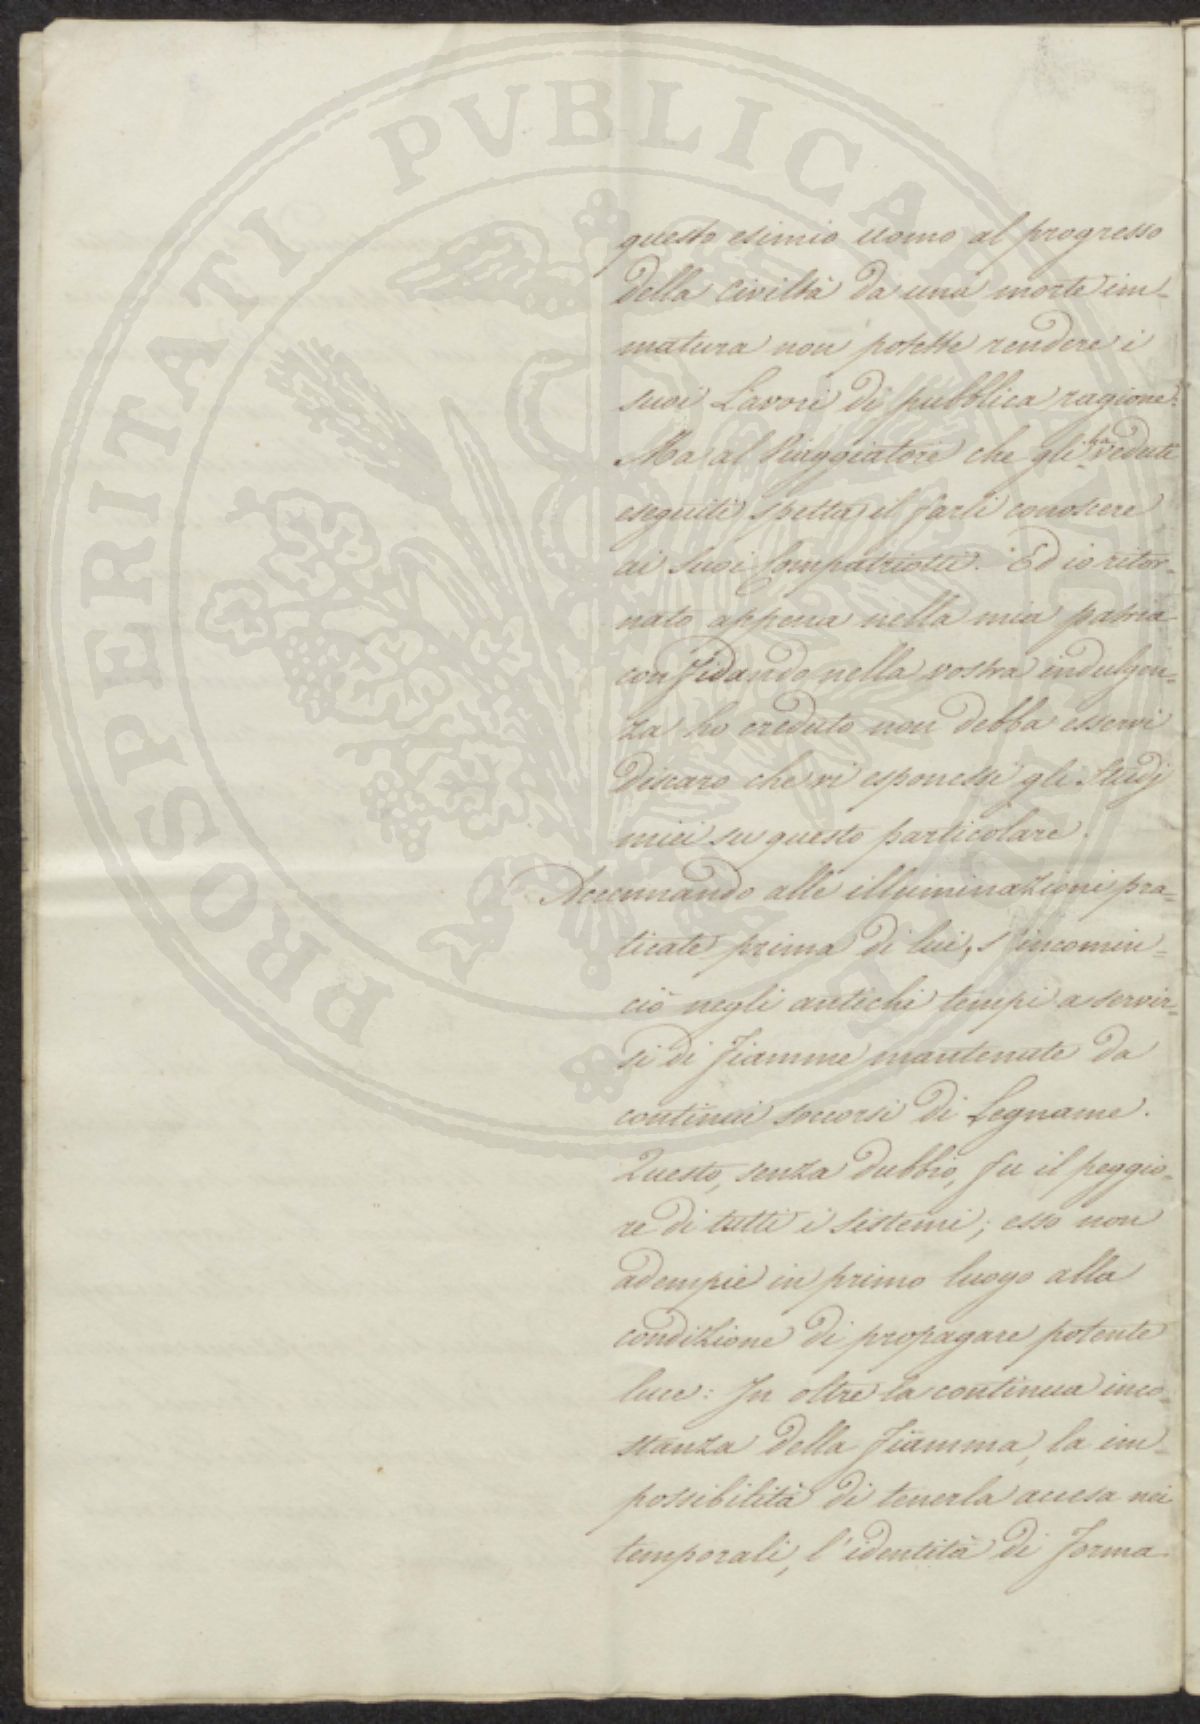 PROSPERITATI PVBLICAE AVGENDAE
questo esimio uomo al progresso
della Civiltà da una morte im-
matura non potesse rendere i
suoi Lavori di pubblica ragione.
Ma al Viaggiatore che gli ha veduti
eseguiti spetta il farli conoscere
ai suoi Compatriotti. Ed io ritor-
nato appena nella mia patria
confidando nella vostra indulgen-
za ho creduto non debba esservi
discaro che vi esponessi gli Studj
miei su questo particolare.
Accennando alle illuminazioni pra-
ticate prima di lui, s'incomin-
ciò negli antichi tempi a servir-
si di fiamme mantenute da
continui soccorsi di Legname.
Questo, senza dubbio, fu il peggio-
re di tutti i sistemi; esso non
adempie in primo luogo alla
condizione di propagare potente
luce: In oltre la continua inco-
stanza della fiamma, la im-
possibilità di tenerla accesa nei
temporali, l'identità di forma